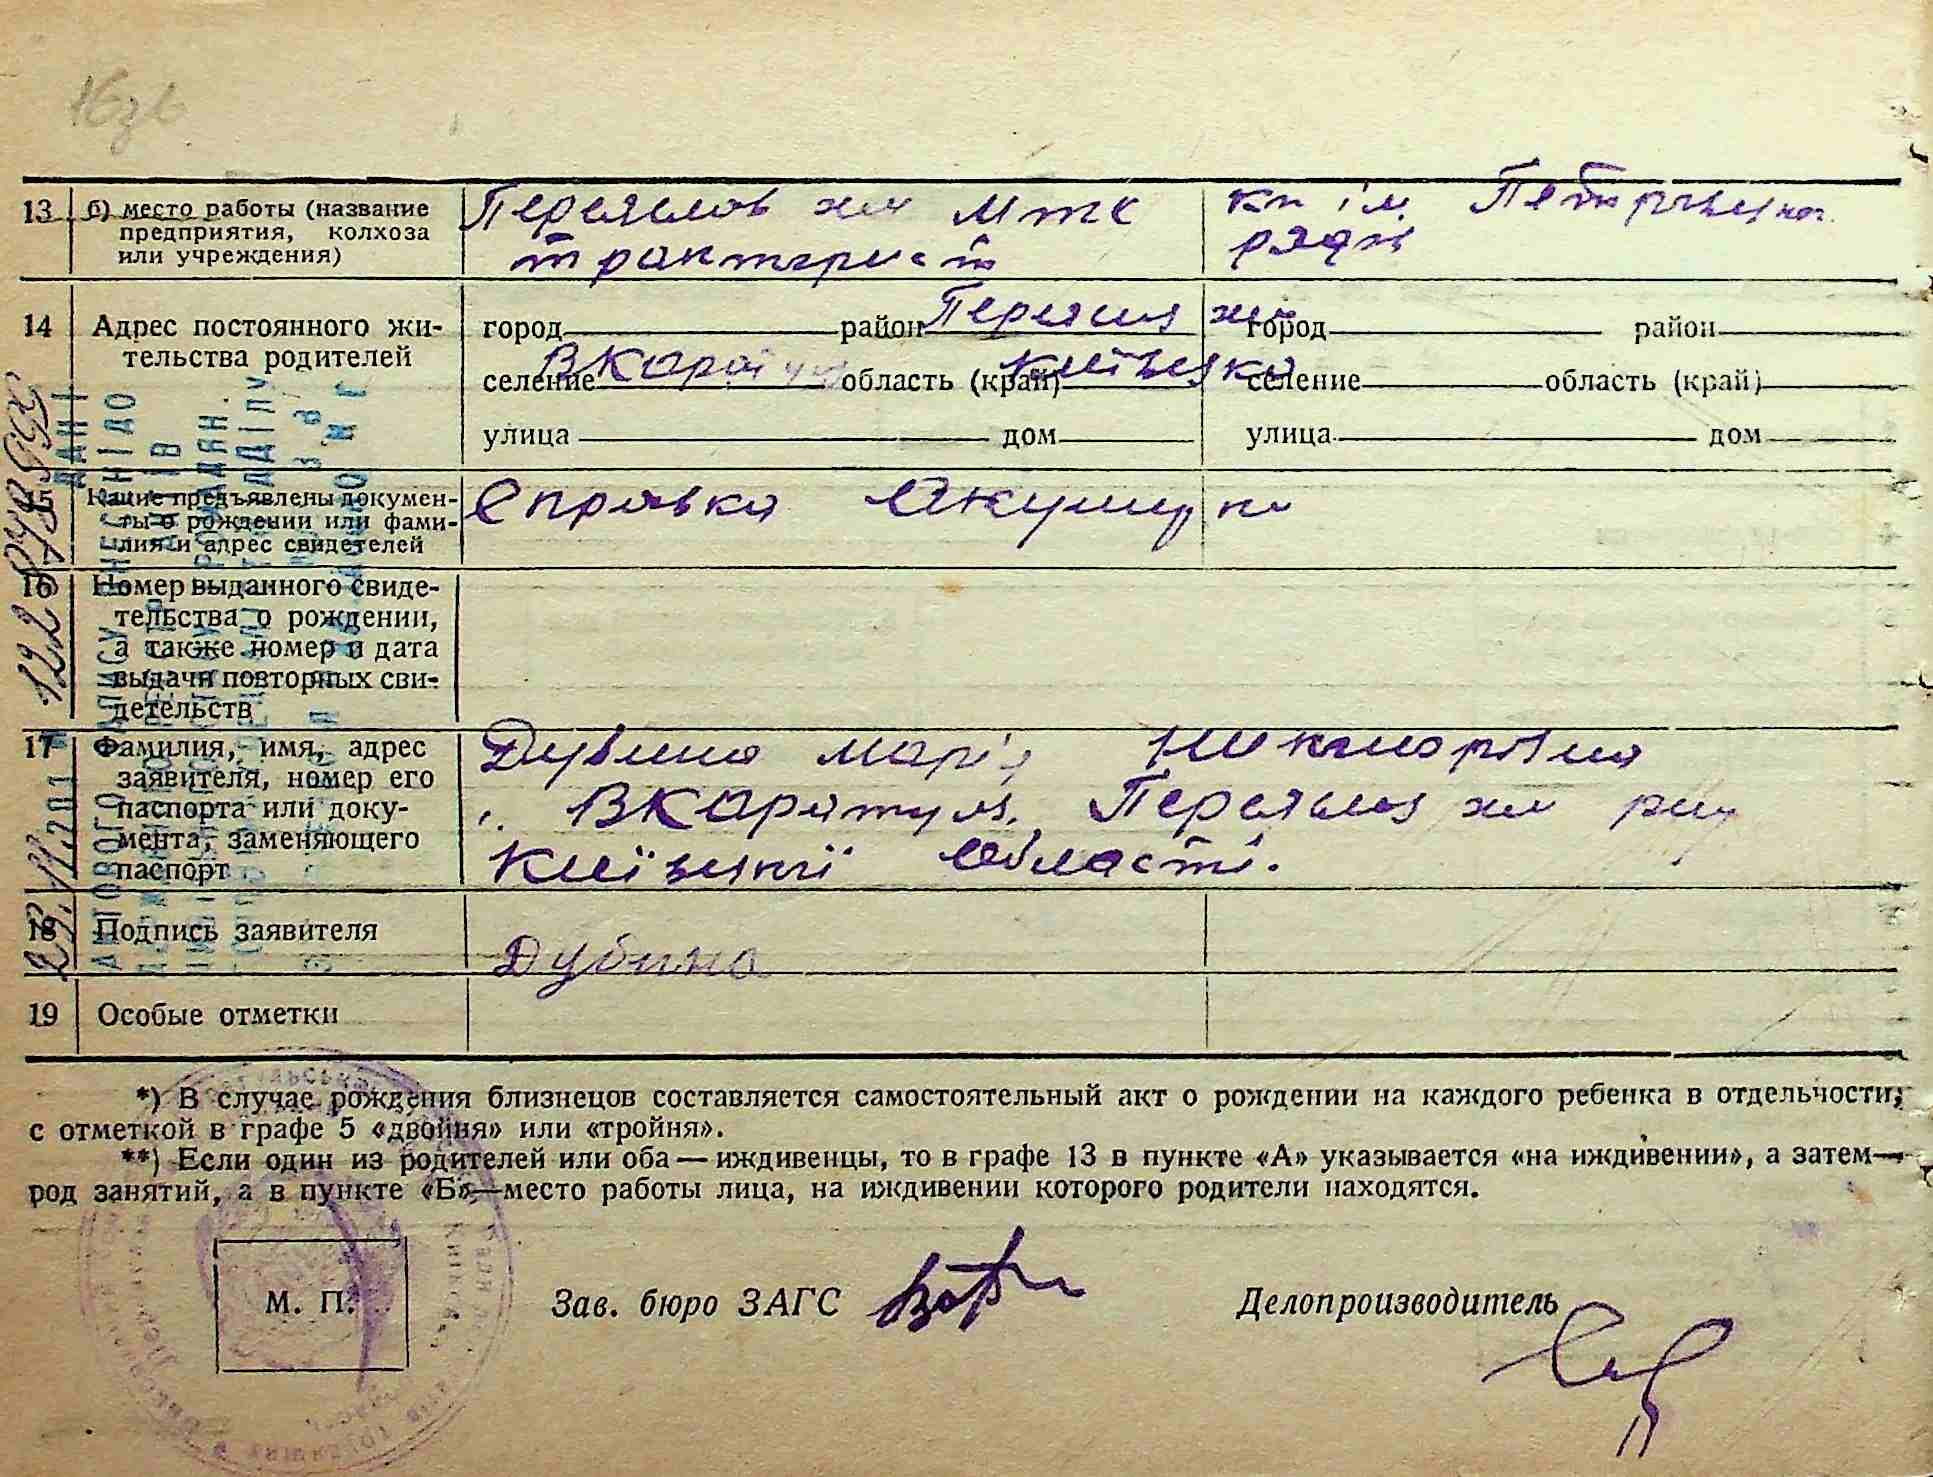 16зв
13 б) место работы (название предприятия, колхоза или учреждения)
Переяслов хм МТС
тракторист
кп ім
14 Адрес постоянного жительства родителей
город район Переясл хм город район
селение ВКаратул область (край) київська селение область (край)
улица дом улица дом
15 Какие предъявлены документы о рождении или фамилия и адрес свидетелей
Справка Акушерки
16 Номер выданного свидетельства о рождении, а также номер и дата выдачи повторных свидетельств
17 Фамилия, имя, адрес заявителя, номер его паспорта или документа, заменяющего паспорт
Дубина марія Никаноровна
ВКаратул, Переяслов хм р-ну
Київської Області.
18 Подпись заявителя
Дубина
19 Особые отметки
*) В случае рождения близнецов составляется самостоятельный акт о рождении на каждого ребенка в отдельности,
с отметкой в графе 5 «двойня» или «тройня».
**) Если один из родителей или оба — иждивенцы, то в графе 13 в пункте «А» указывается «на иждивении», а затем—
род занятий, а в пункте «Б»—место работы лица, на иждивении которого родители находятся.
М. П. Зав. бюро ЗАГС Делопроизводитель